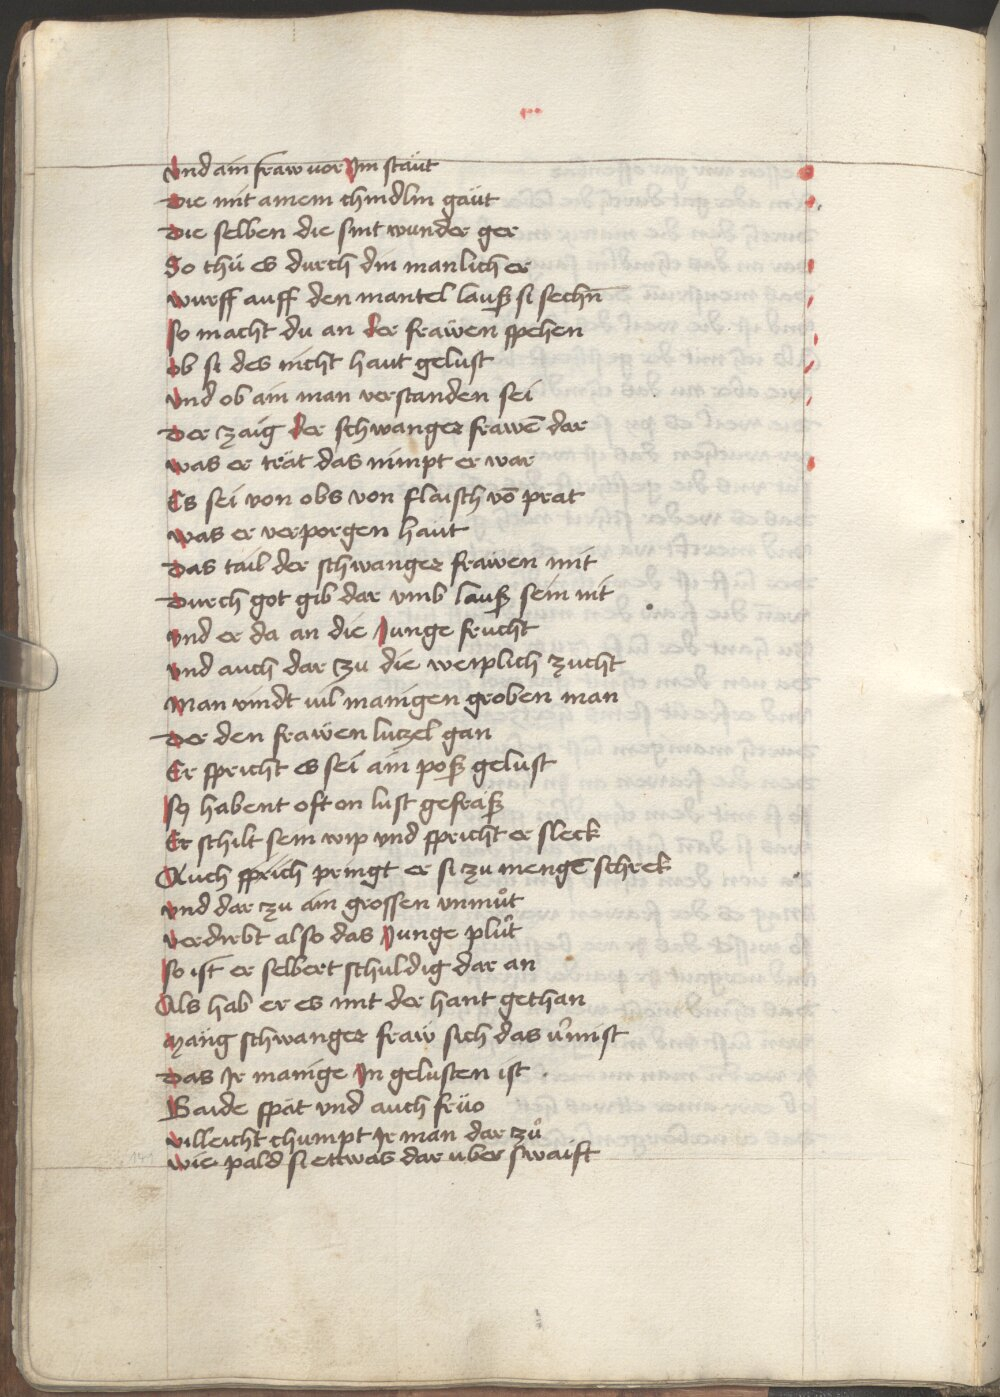 Vnd ain fraw vor Jm stäut
Die mit ainem chindlin gäut
Die selben die sint wunder ger
So thü es durch din manlich er
wurff auff den mantel lauß si sechn̄
so macht du an der fräwen spehen
ob si des nicht haut gelust
vnd ob ain man verstanden sei
Der zaig der schwanger frawē dar
was er trät das nimpt er war
Es sei von obs von flaisch vō prat
was er verporgen haut
Das tail der schwanger frawen mit
Durch got gib dar vmb lauß sein nit
vnd er da an die Junge frucht
vnd auch dar zu die weiplich zucht
Man vindt vil manigen groben man
Der den fräwen lutzel gan
Er spricht es sei ain poß gelust
sy habent oft on lust gefräß
Er schilt sein wip vnd spricht er sleck
Auch sprich pringt er si zu mengē schrek
vnd dar zu ain grossen vnmuͦt
verdirbt also das Junge pluͦt
so ist er selbert schuldig dar an
Als hab er es mit der hant gethan
Mäng schwanger fraw sich das v̓mist
Das Jr manige Jn gelusten ist
Baide spät vnd auch früo
villeicht chumpt Jr man dar zuͦ
wie pald si ettwas dar uber swaist